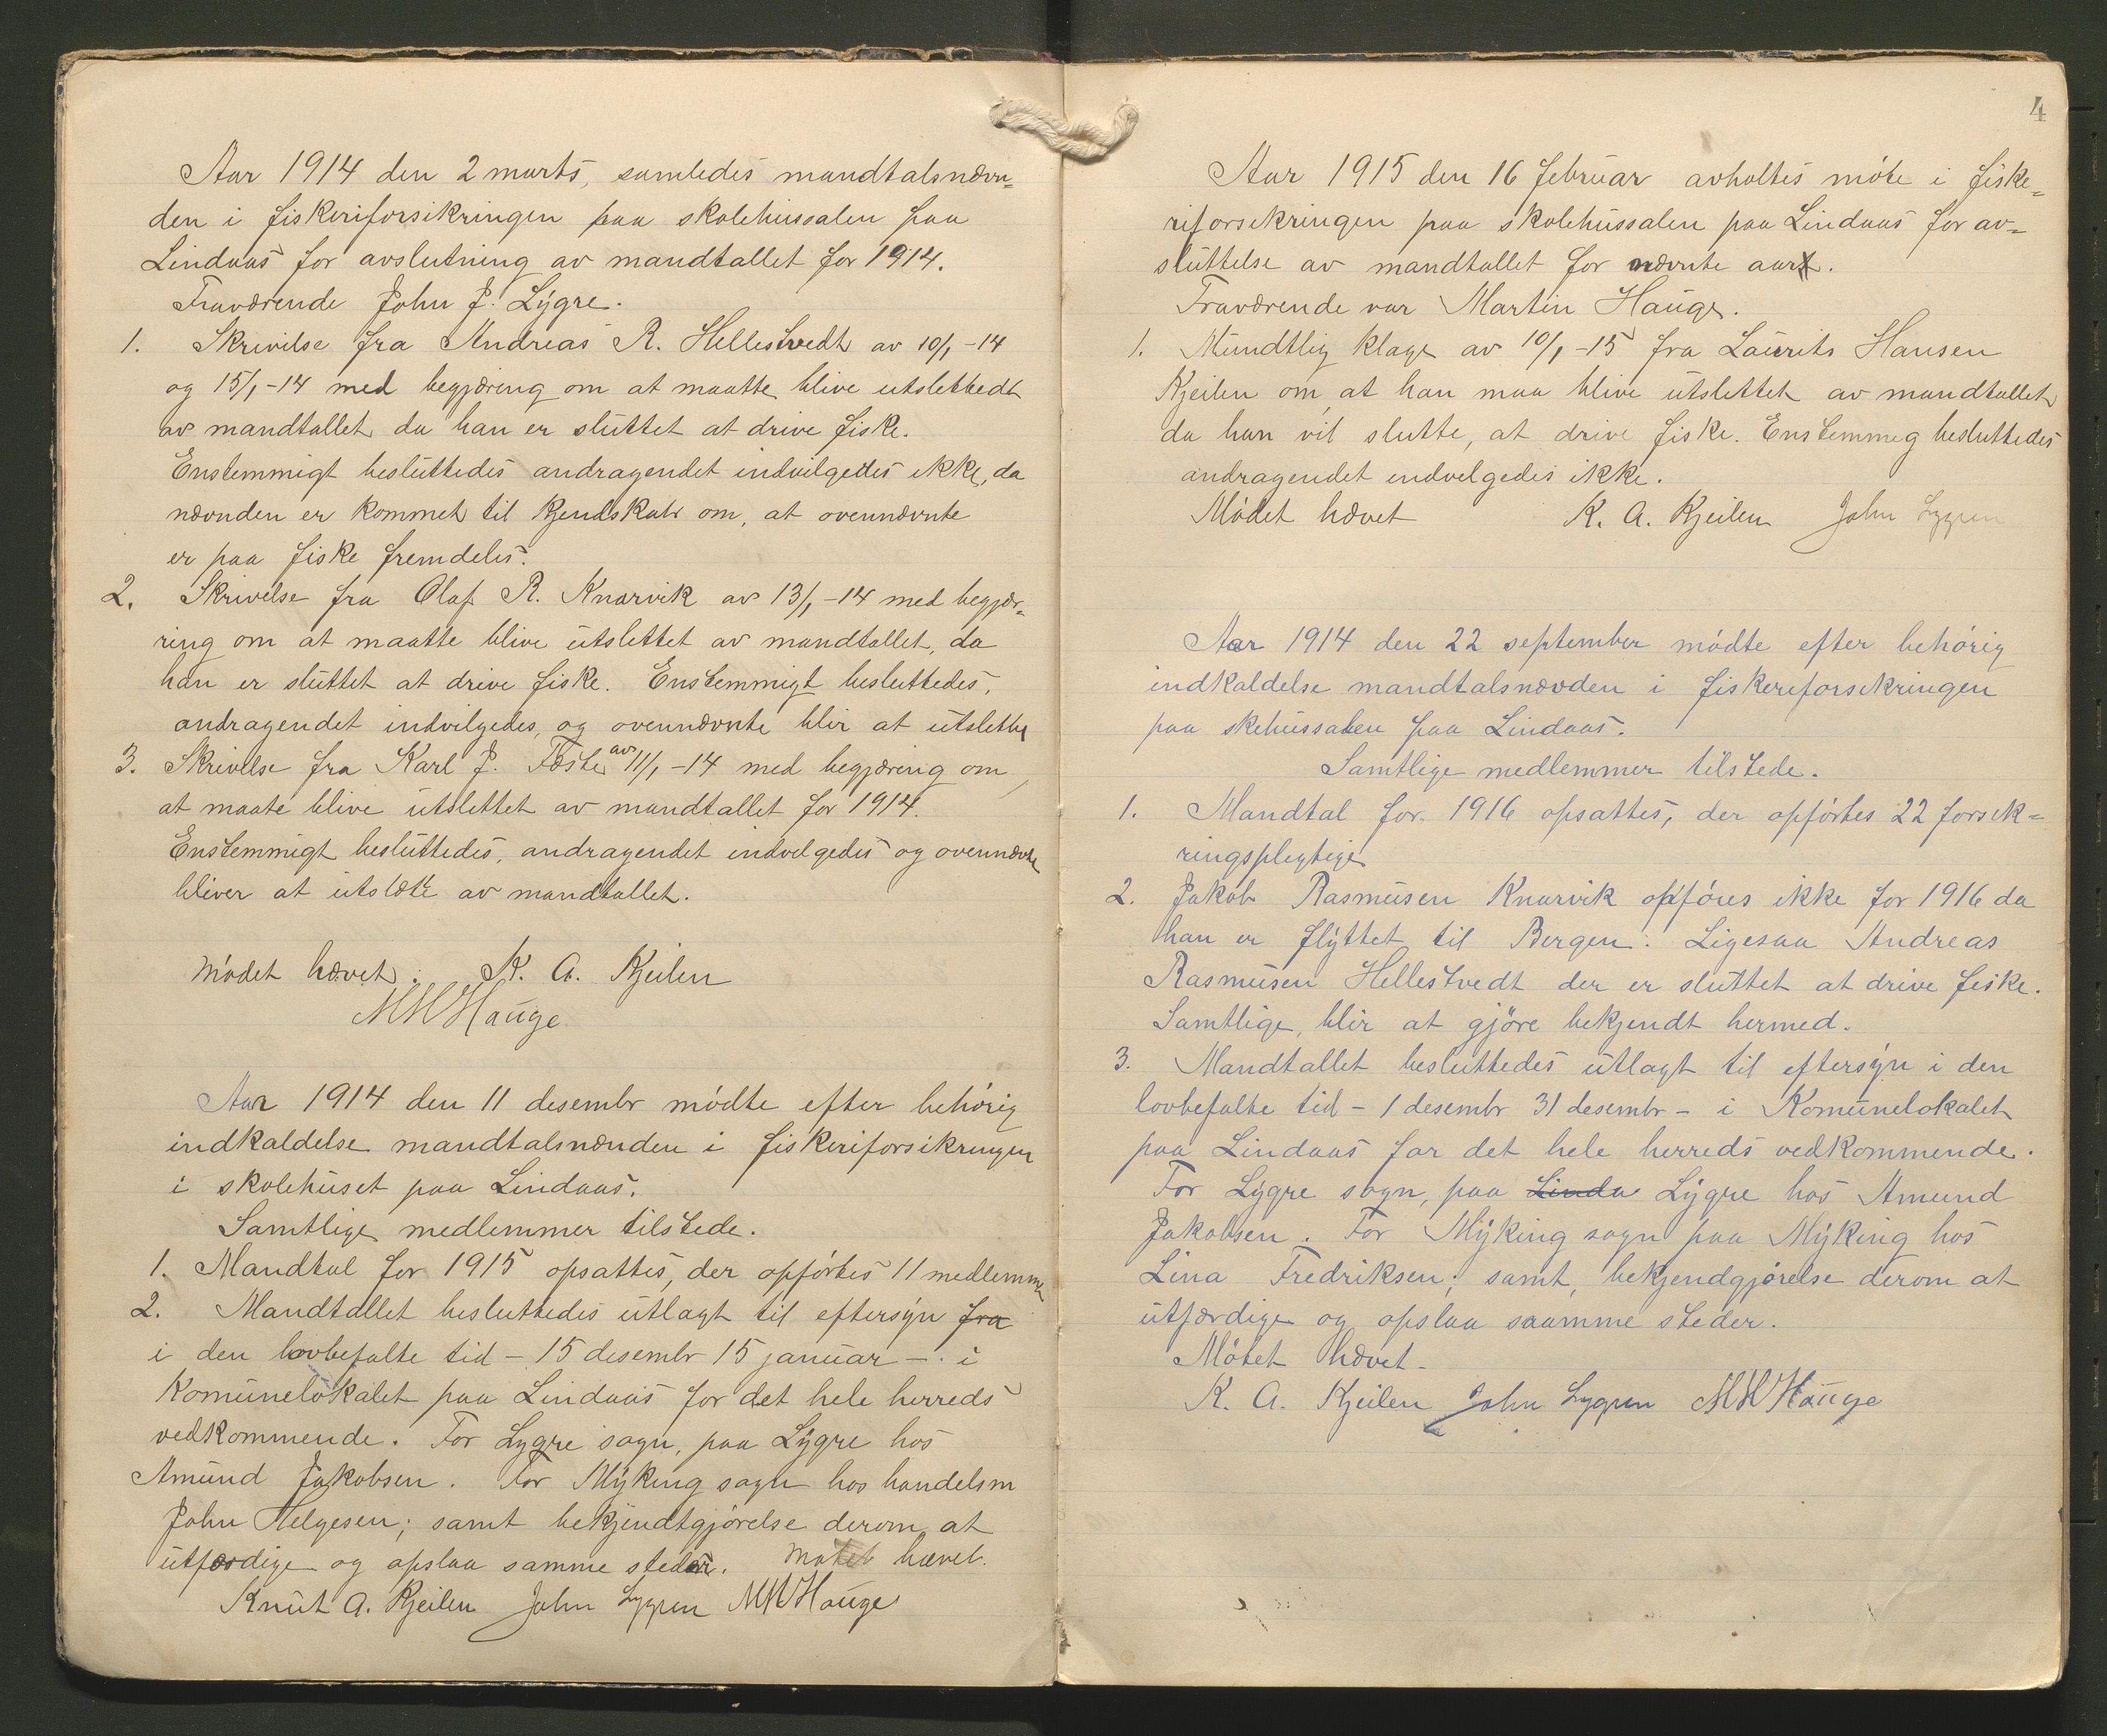 Aar 1914 den 2 marts, samledes mandtalsnævn=
den i fiskeriforsikringen paa skolehussalen paa
Lindaas for avslutning av mandtallet for 1914.
Fraværende John J. Lygre.
1. Skrivilse fra Andreas R. Hellestvedt av 10/1-14
og 15/1-14 med begjæring om at maatte blive utslettedt
av mandtallet da han er sluttet at drive fiske.
Enstemmigt besluttedes andragendet indvilgedes ikke, da
nævnden er kommet til kjendskab om, at ovennævnte
er paa fiske fremdeles.
2. Skrivelse fra Olaf R. Knarvik av 13/1-14 med begjær=
ring om at maatte blive utslettet av mandtallet, da
han er sluttet at drive fiske. Enstemmigt besluttedes,
andragendet indvilgedes, og ovennævnte blir at utslette
3. Skrivelse fra Karl J. Fæste av 11/1-14 med begjæring om,
at maate blive utslettet av mandtallet for 1914.
Enstemmigt besluttedes, andragendet indvelgedes og ovennævte
bliver at utslætte av mandtallet.
Mødet hævet. K. A. Kjeilen
MMHauge
Aar 1914 den 11 desembr mødte efter behørig
indkaldelse mandtalsnænden i fiskeriforsikringen
i skolehuset paa Lindaas.
Samtlige medlemmer tilstede.
1. Mandtal for 1915 opsattes, der opførtes 11 medlemme
2. Mandtallet besluttedes utlagt til eftersyn fra
i den lovbefalte tid - 15 desembr 15 januar -. i
Komunelokalet paa Lindaas for det hele herreds
vedkommende. For Lygre sogn, paa Lygre hos
Amund Jakobsen. For Myking sogn hos handelsm
John Helgesen; samt bekjendtgjørelse derom at
utfærdige og opslaa samme steder. Møtet hævet.
Knut A. Kjeilen John Lygren MMHauge
4
Aar 1915 den 16 februar avholtes møte i fiske=
riforsekringen paa skolehussalen paa Lindaas for av=
sluttelse av mandtallet for nævnte aar.
Fraværende var Martin Hauge.
1. Mundtlig klage av 10/1-15 fra Laurits Hansen
Kjeilen om, at han maa blive utslettet av mandtallet
da han vil slutte, at drive fiske. Enstemmeg besluttedes
andragendet indvelgedes ikke.
Mødet hævet K. A. Kjeilen John Lygren
Aar 1914 den 22 september mødte efter behørig
indkaldelse mandtalsnævden i fiskereforsekringen
paa skehussalen paa Lindaas.
Samtlige medlemmer tilstede.
1. Mandtal for 1916 opsattes, der opførtes 22 forsek=
ringsplegtige
2. Jakob Rasmusen Knarvik opføres ikke for 1916 da
han er flyttet til Bergen. Ligesaa Andreas
Rasmusen Hellestvedt der er sluttet at drive fiske.
Samtlige, blir at gjøre bekjendt hermed.
3. Mandtallet besluttedes utlagt til eftersyn i den
lovbefalte tid - 1 desembr 31 desembr - i Komunelokalet
paa Lindaas for det hele herreds vedkommende.
For Lygre sogn, paa Linda Lygre hos Amund
Jakobsen. For Myking sogn paa Myking hos
Lina Fredriksen; samt, bekjendgjørelse derom at
utfærdige og opslaa saamme steder.
Møtet hævet.
K. A. Kjeilen John Lygren MMHauge